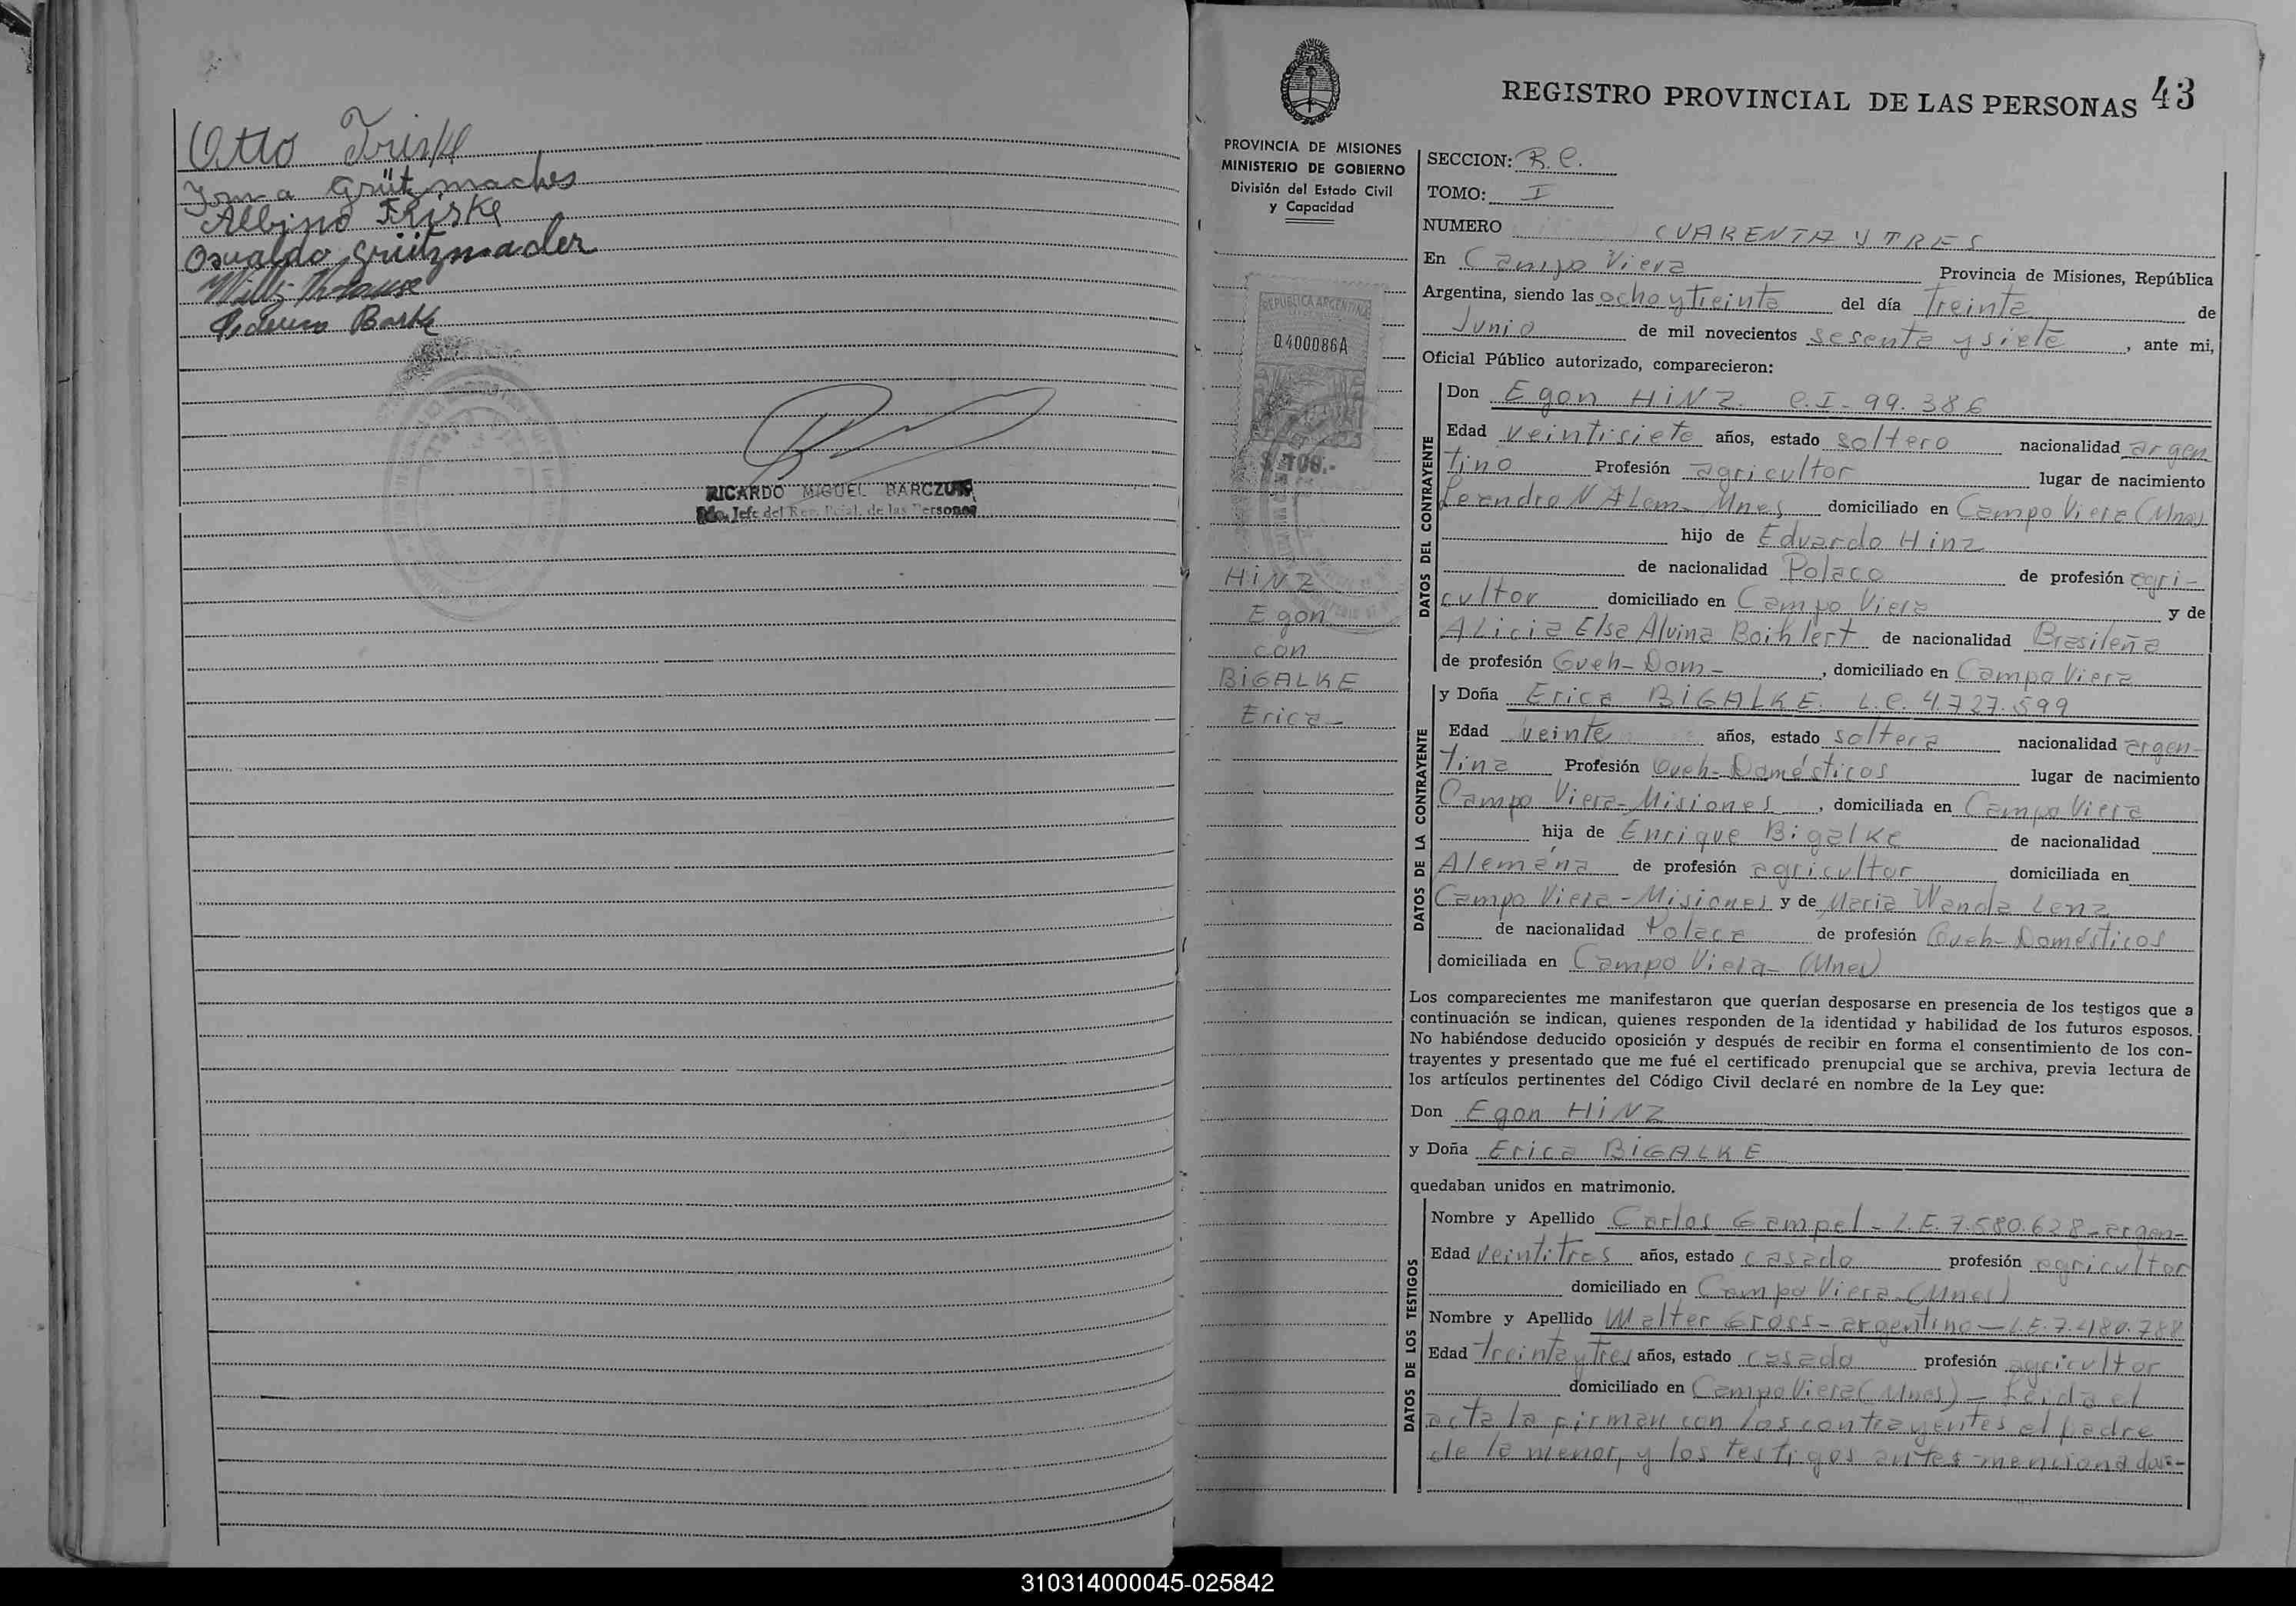 Otto Friske
Irma Grützmacher
Albino Friske
Osvaldo Grützmacher
Willy Krause
Federico Bartke
RICARDO MIGUEL BARCZUK
Jefe del Reg. Pcial. de las Personas
REGISTRO PROVINCIAL DE LAS PERSONAS 43
PROVINCIA DE MISIONES
MINISTERIO DE GOBIERNO
División del Estado Civil
y Capacidad
REPUBLICA ARGENTINA
0.400086A
$ 100.-
HINZ
Egon
con
BIGALKE
Erica-
SECCION: R. C.
TOMO: I
NUMERO CUARENTA Y TRES
En Campo Viera Provincia de Misiones, República
Argentina, siendo las ocho y treinta del día Treinta de
Junio de mil novecientos sesenta y siete, ante mi,
Oficial Público autorizado, comparecieron:
DATOS DEL CONTRAYENTE
Don Egon HINZ. C.I. 99.386
Edad veintisiete años, estado soltero nacionalidad argen
tino Profesión agricultor lugar de nacimiento
Leandro N Alem- Mnes domiciliado en Campo Viera (Mnes)
hijo de Eduardo Hinz
de nacionalidad Polaco de profesión agri-
cultor domiciliado en Campo Viera y de
Alicia Elsa Alvina Boihlert de nacionalidad Brasileña
de profesión Queh-Dom-, domiciliado en Campo Viera
DATOS DE LA CONTRAYENTE
y Doña Erica BIGALKE. L.C. 4.727.599
Edad veinte años, estado soltera nacionalidad argen-
tina Profesión Queh-Domésticos lugar de nacimiento
Campo Viera-Misiones, domiciliada en Campo Viera
hija de Enrique Bigalke de nacionalidad
Alemana de profesión agricultor domiciliada en
Campo Viera-Misiones y de Maria Wanda Lenz
de nacionalidad Polaca de profesión Queh-Domésticos
domiciliada en Campo Viera- (Mnes)
Los comparecientes me manifestaron que querían desposarse en presencia de los testigos que a
continuación se indican, quienes responden de la identidad y habilidad de los futuros esposos.
No habiéndose deducido oposición y después de recibir en forma el consentimiento de los con-
trayentes y presentado que me fué el certificado prenupcial que se archiva, previa lectura de
los artículos pertinentes del Código Civil declaré en nombre de la Ley que:
Don Egon HINZ
y Doña Erica BIGALKE
quedaban unidos en matrimonio.
DATOS DE LOS TESTIGOS
Nombre y Apellido Carlos Gampel- L.E. 7.580.628-argen-
Edad veintitres años, estado casado profesión agricultor
domiciliado en Campo Viera-(Mnes)
Nombre y Apellido Walter Gross-argentino-L.E.7.480.788
Edad treinta y tres años, estado casado profesión agricultor
domiciliado en Campo Viera (Mnes)- Leida el
acta la firman con los contrayentes el padre
de la menor, y los testigos antes mencionados-
310314000045-025842